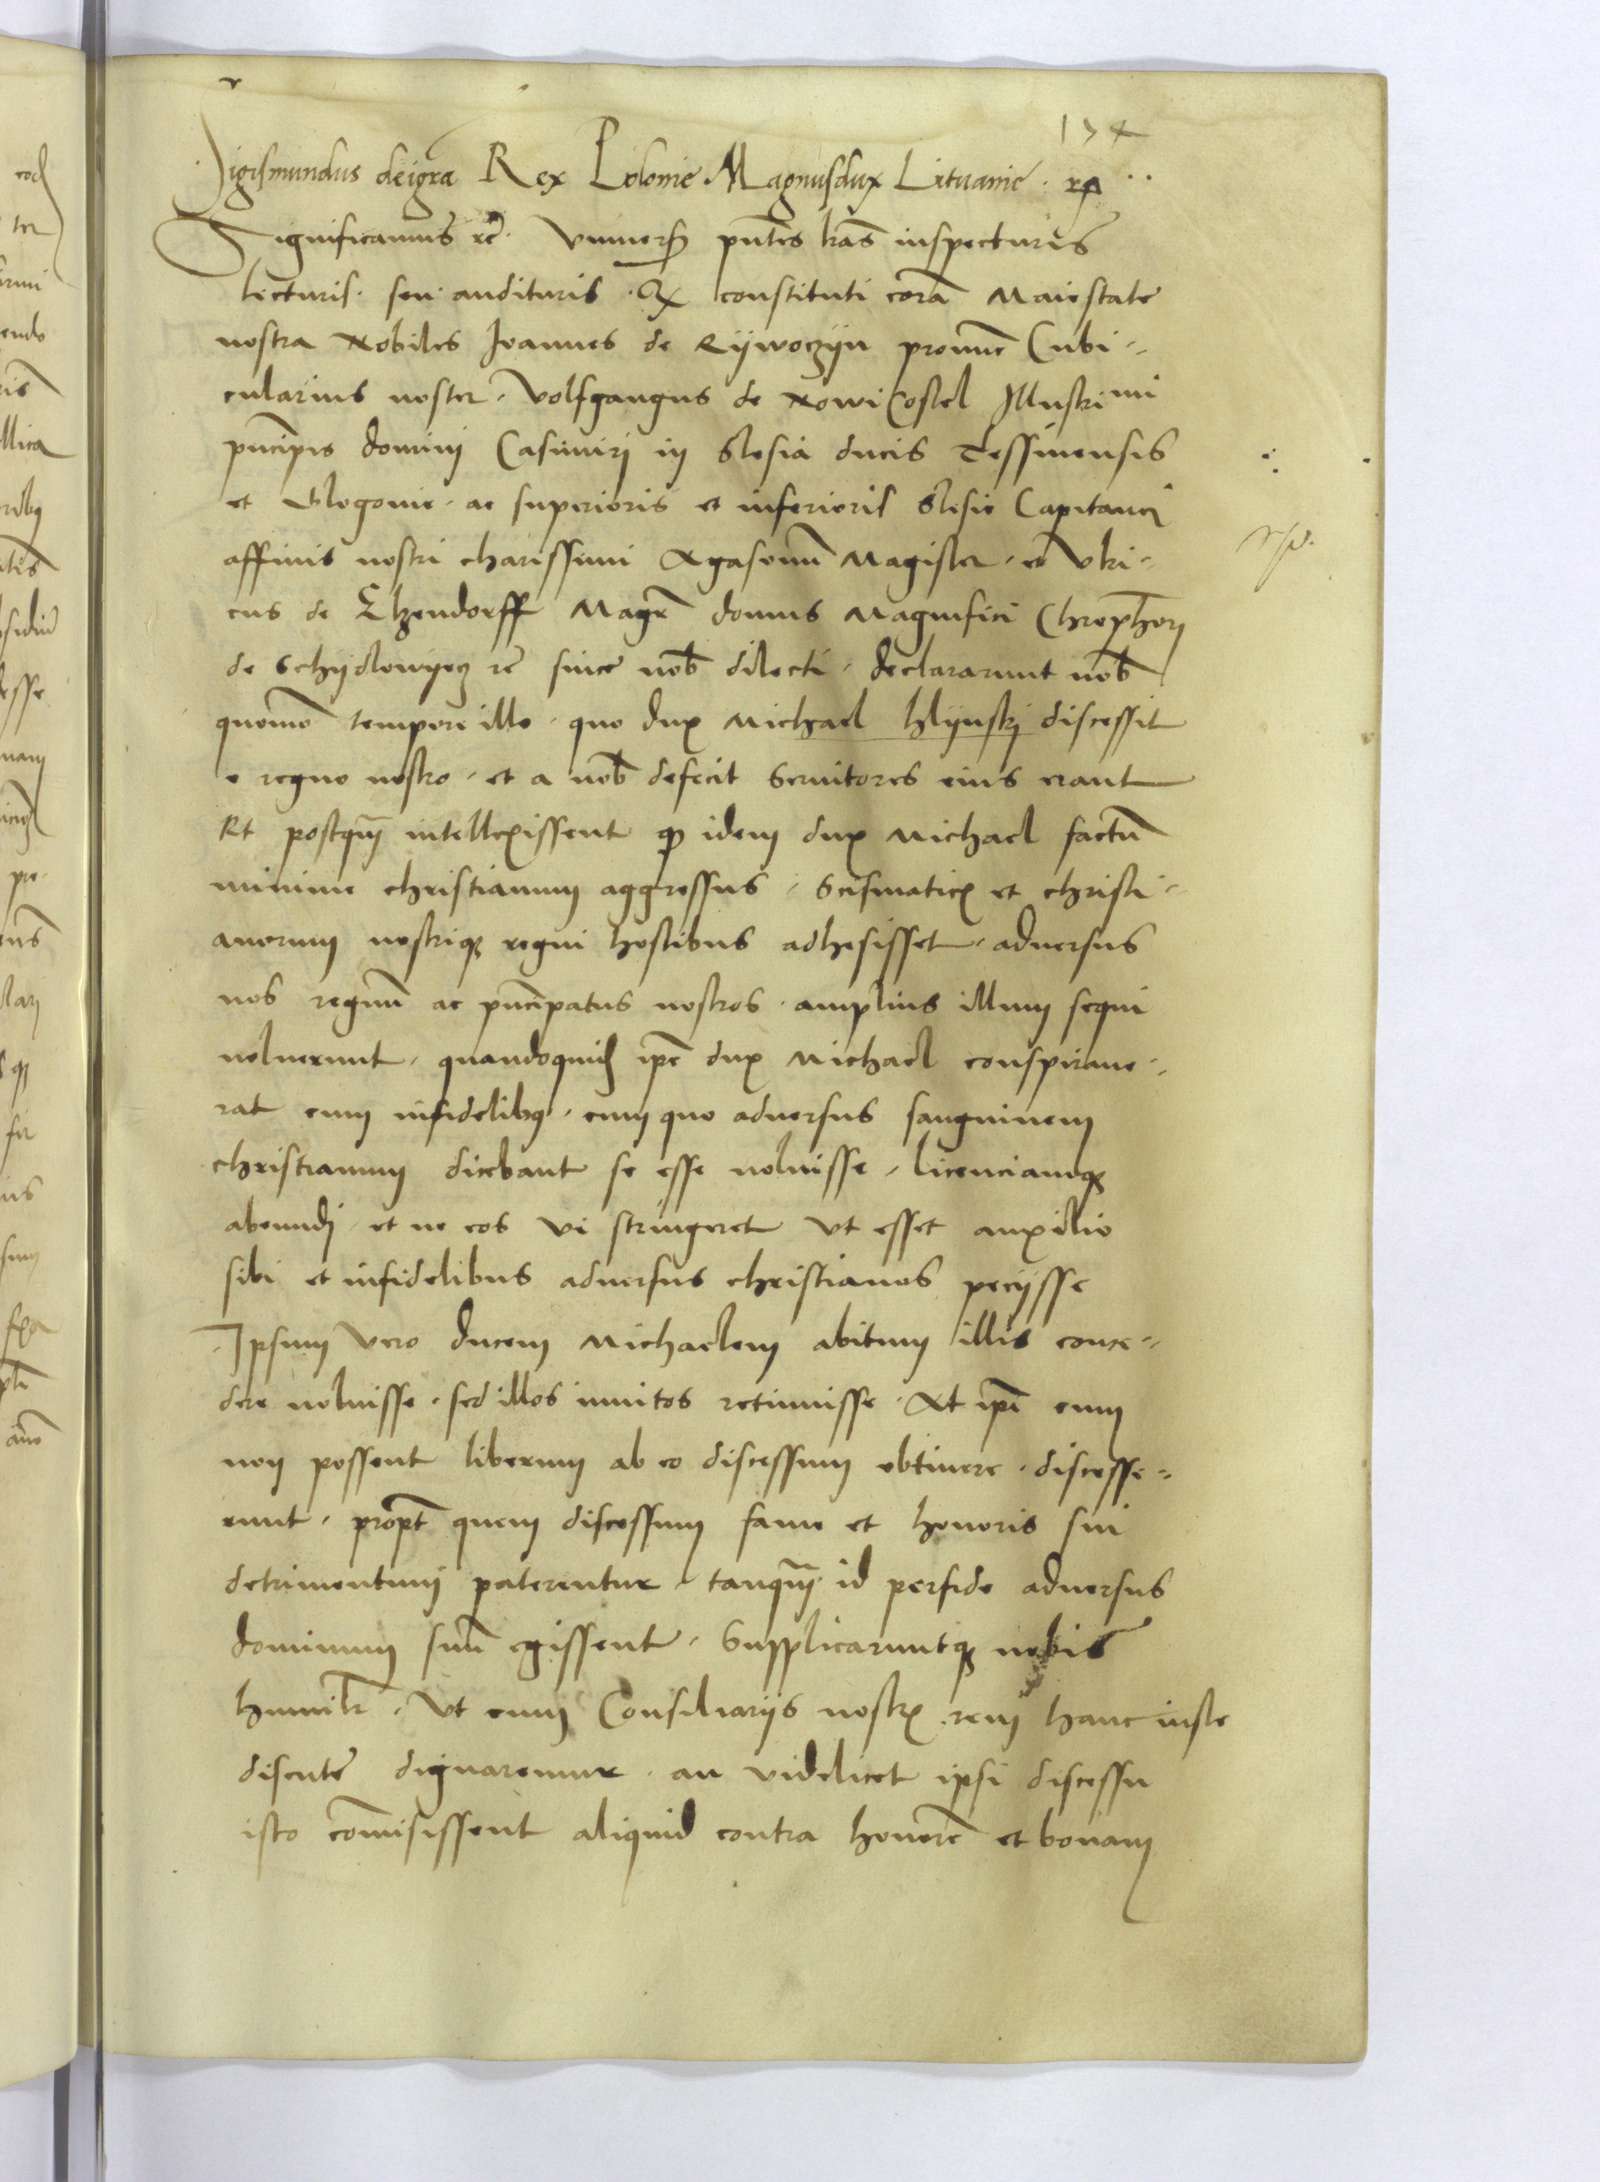 134
Sigismundus dei gra Rex Polonie Magnusdux Lituanie · rc
Significamus rc · Vniuers pntes lras inspecturis
lecturis · seu audituris · Qz constituti cora Maiestate
nostra Nobiles Ioannes de Rijwoczijn pronuc Cubi-
cularius noster · Volfgangus de Nowi Costel Illustrimi
pncipis domini Casimirj in Slesia ducis Tessinensis
et Glogouie · ac superioris et inferioris Slesie Capitanei
affinis nostri charissimi Agasonu Magister · et Vlri-
cus de Elzendorff Magr domus Magnifici Chrophorj
de Schijdlowijecz rc since nob dilecti · declararunt nob
quomo tempore illo · quo dux Michael hlijnskj discessit
e regno nostro · et a nob defecit Seruitores eius erant
Et postqua intellexissent qz idem dux Michael factu
minime christianum aggressus · Scismaticz et christi-
anorum nostriqz regni hostibus adhesisset · aduersus
nos regnu ac pncipatus nostros · amplius illum sequi
noluerunt · quandoquid ipe dux Michael conspiraue-
rat cum infidelibz · cum quo aduersus sanguinem
christianum dicebant se esse noluisse · licenciamqz
abeundj · et ne eos vi stringeret vt esset auxilio
sibi et infidelibus aduersus christianos pecijsse
Ipsum vero ducem Michaelem abitum illis conce-
dere noluisse · sed illos inuitos retinuisse · At ipi cum
non possent liberum ab eo discessum obtinere · discesse-
runt · propt quem discessum fame et honoris sui
detrimentum paterentur · tanqua id perfide aduersus
dominum suu egissent · Supplicaruntqz nobis
humilr · Vt cum Consiliarijs nostrz rem hanc iuste
discute dignaremur · an videlicet ipsi discessu
isto comisissent aliquid contra honore et bonam